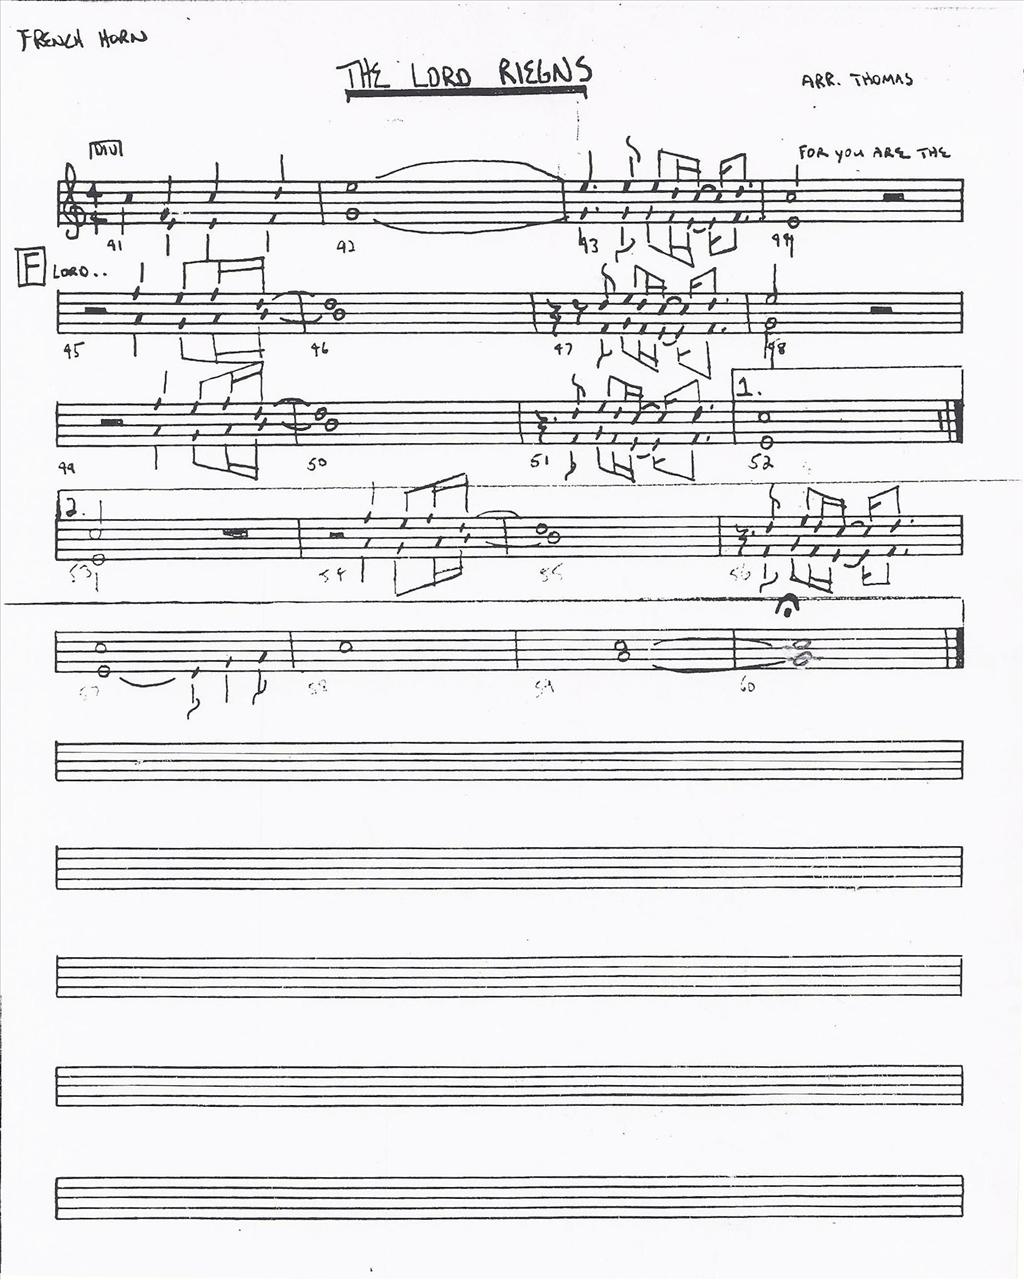 FRENCH HORN
THE LORD RIEGNS
ARR. THOMAS
DIV
FOR YOU ARE THE
41 42 43 44
F LORD..
45 46 47 48
1.
49 50 51 52
2.
53 54 55 56
57 58 59 60